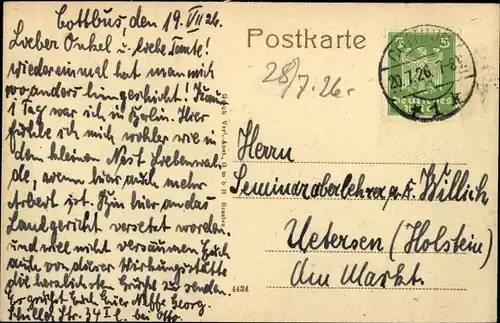 Cottbus, den 19. VII 26.
Lieber Onkel u. liebe Tante!
Wieder einmal hat man mich
wo anders hingeschickt! Kaum
1 Tag war ich in Berlin. Hier
fühle ich mich wohler wie in
dem kleinen Nest Liebenwal-
de, wenn hier auch mehr
Arbeit ist. Bin hier an das
Landgericht versetzt worden
und will nicht versäumen Euch
auch von dieser Wirkungsstätte
die herzlichsten Grüße zu senden
Es grüßt Euch Euer Neffe Georg.
Str. 34 I l. bei Otto.
Postkarte
28/7. 26.
20.7.26. 7-8
5
Deutsches
Herrn
Seminaroberlehrer a. D. Willich
Uetersen (Holstein)
Am Markt.
4434